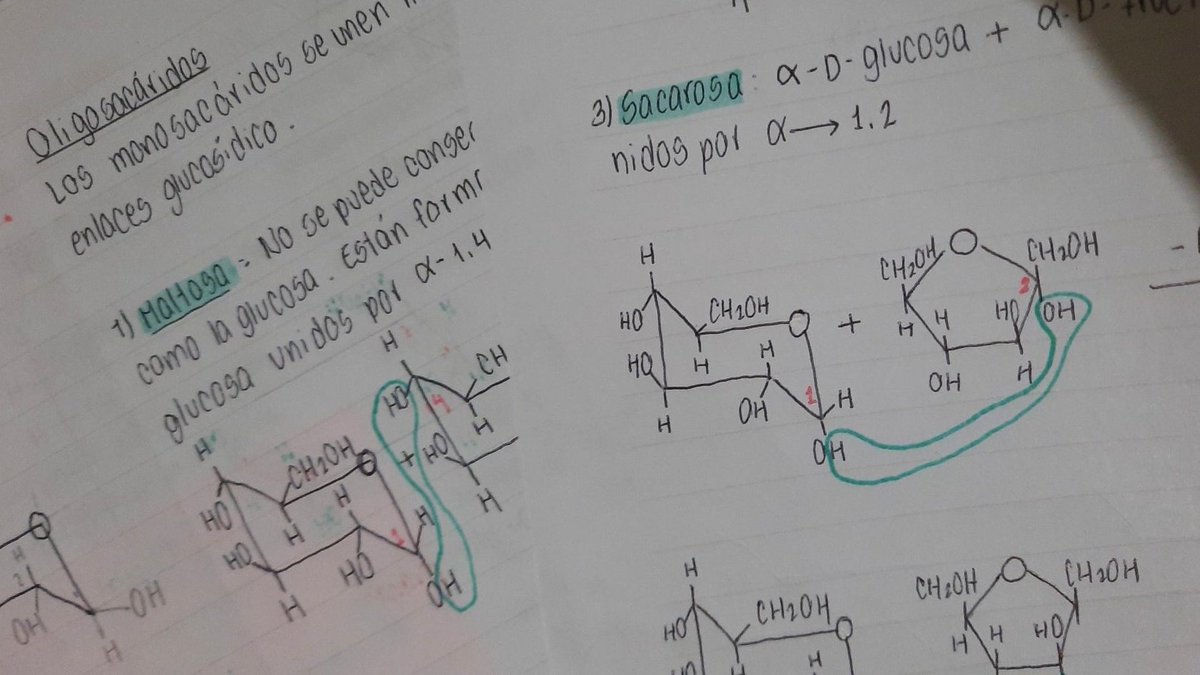 Oligosacáridos
Los monosacáridos se unen
enlaces glucosídico.
1) Maltosa = No se puede
como la glucosa. Están
glucosa unidos por α-1,4
H
CH
HO
4
H
+
HO
H
H
CH2OH
O
HO
H
H
H
HO
1
HO
OH
H
O
H
2
OH
OH
H
3) Sacarosa: α-D-glucosa +
nidos por α→1,2
H
HO
CH2OH
O
H
H
HO
1
H
OH
H
OH
+
CH2OH
O
CH2OH
2
H
H
HO
OH
OH
H
H
CH2OH
HO
O
H
H
CH2OH
O
CH2OH
H
H
HO